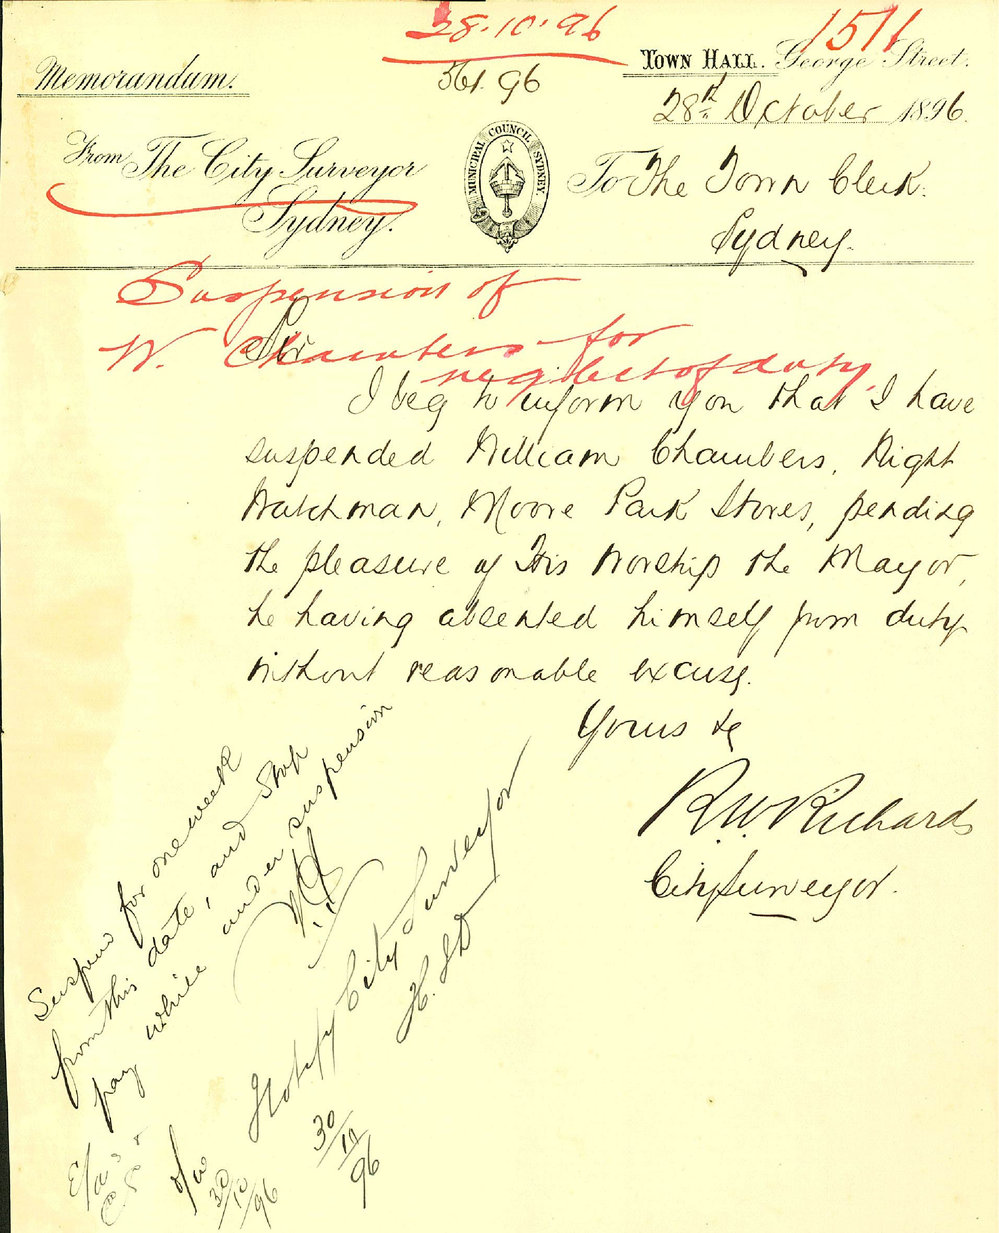 28.10.96
1511
Memorandum.
561.96
Town Hall. George Street.
28th October 1896.
From The City Surveyor
Sydney.
MUNICIPAL COUNCIL SYDNEY
To The Town Clerk.
Sydney.
Suspension of
W. Chambers for
neglect of duty.
Sir
I beg to inform you that I have
suspended William Chambers, Night
Watchman, Moore Park Stores, pending
the pleasure of His Worship the Mayor,
he having absented himself from duty
without reasonable excuse.
Yours &c
R.W. Richards
City Surveyor.
Suspend for one week
from this date, and stop
pay while under suspension
Notify City Surveyor
H.
30/10/96
30/10/96